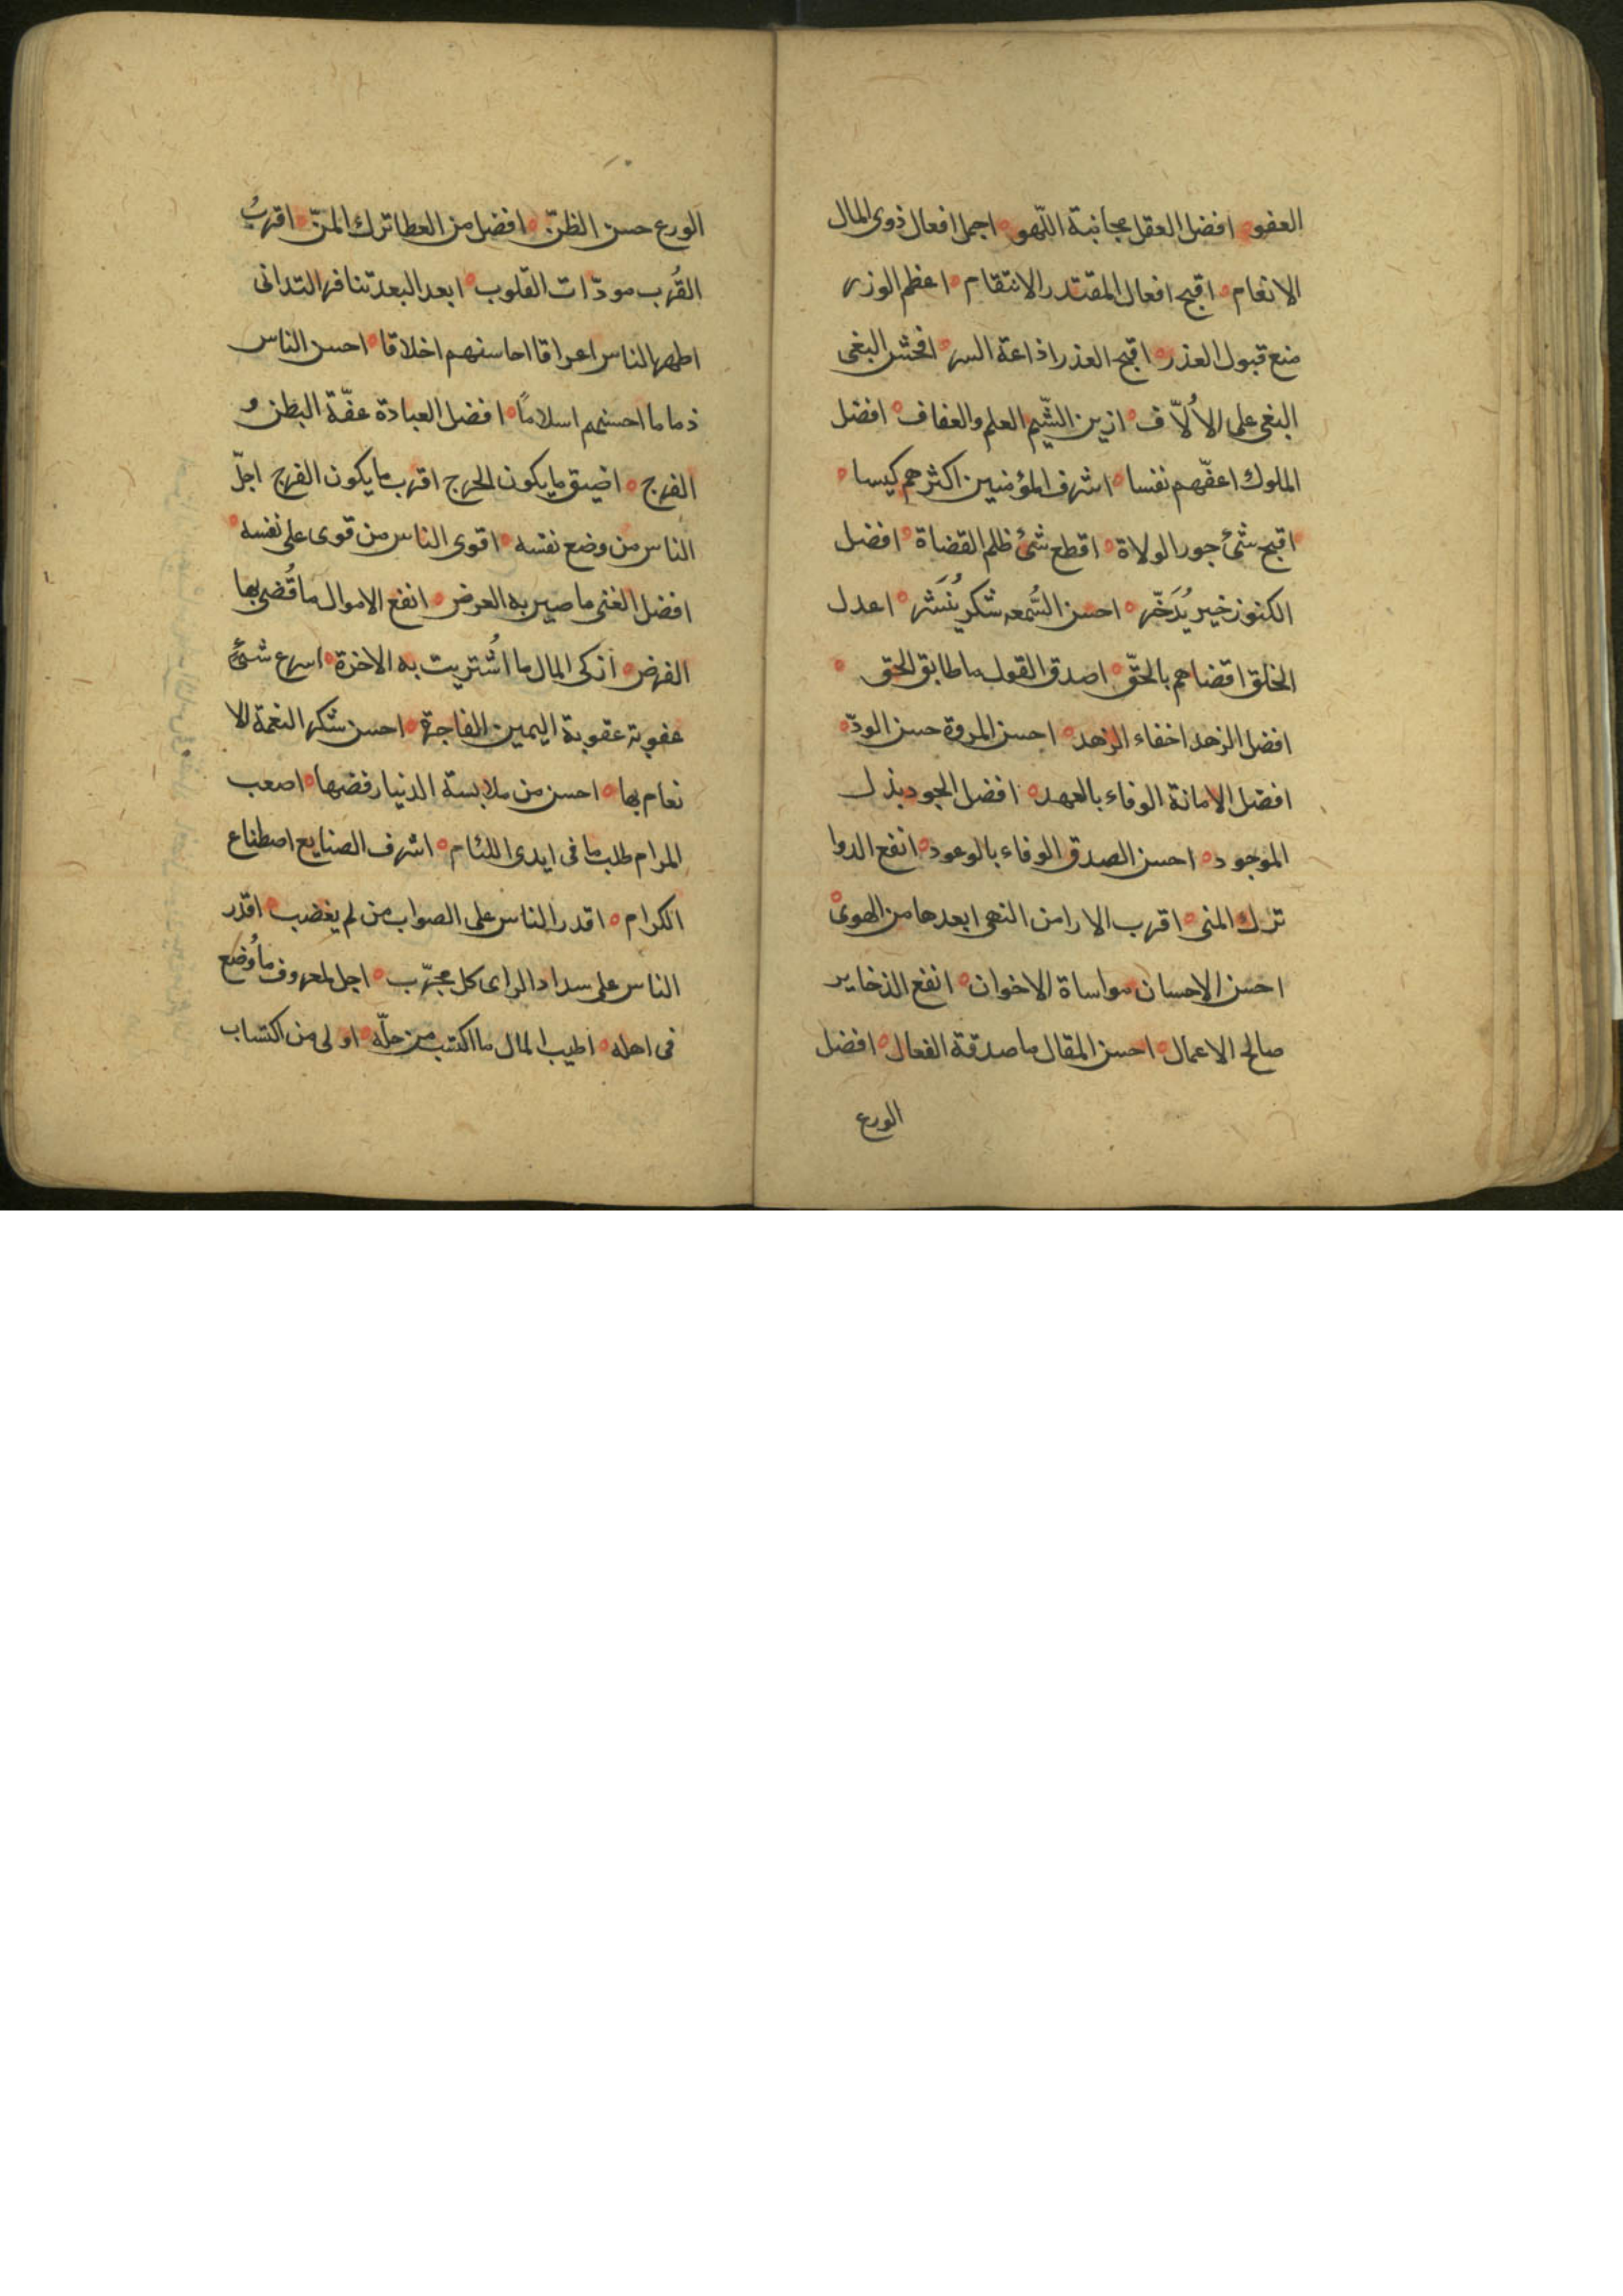 العفو ه افضل العقل مجانبة اللّهو ه اجمل افعال ذوى المال
الانعام ه اقبح افعال المقتدر الانتقام ه اعظم الوزر
منع قبول العذر ه اقبح العذر اذاعة السر ه افحش البغى
البغى على الأُلّاف ه ازين الشّيم العلم والعفاف ه افضل
الملوك اعفّهم نفسا ه اشرف المؤمنين اكثرهم كيسا ه
اقبح شئ جور الولاة ه اقطع شئ ظلم القضاة ه افضل
الكنوز خير يُدَخّر ه احسن السُّمعه شكر يُنشَر ه اعدل
الخلق اقضاهم بالحقّ ه اصدق القول ما طابق الحق ه
افضل الزهد اخفاء الزهد ه احسن المروة حسن الودّ ه
افضل الامانة الوفاء بالعهد ه افضل الجود بذل
الموجود ه احسن الصدق الوفاء بالوعود ه انفع الدوا
ترك المنى ه اقرب الارا من النهى ابعدها من الهوى ه
احسن الاحسان مواساة الاخوان ه انفع الذخاير
صالح الاعمال ه احسن المقال ما صدقة الفعال ه افضل
الورع
الورع حسن الظنّ ه افضل من العطا ترك المنّ ه اقربُ
القُرب مودّات القلوب ه ابعد البعد تنافر التدانى
اطهر الناس اعراقا احاسنهم اخلاقا ه احسن الناس
ذماما احسنهم اسلامًا ه افضل العبادة عفّة البطن و
الفرج ه اضيق ما يكون الحرج اقرب ما يكون الفرج اجلّ
الناس من وضع نفسه ه اقوى الناس من قوى على نفسه ه
افضل الغنى ما صير به العرض ه انفع الاموال ما قُضى بها
الفرض ه ازكى المال ما اشُتريت به الاخرة ه اسرع شئ
عقوبة عقوبة اليمين الفاجرة ه احسن شكر النعمة الا
نعام بها ه احسن من ملابسة الدنيا رفضها ه اصعب
المرام طلب ما فى ايدى اللئام ه اشرف الصنايع اصطناع
الكرام ه اقدر الناس على الصواب من لم يغضب ه اقدر
الناس على سداد الراى كل مجرّب ه اجل المعروف ما وُضع
فى اهله ه اطيب المال ما اكتسب من حلّه ه اولى من اكتساب